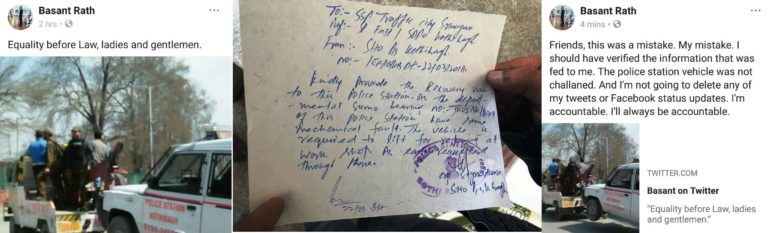 Basant Rath
2 hrs
Equality before Law, ladies and gentlemen.
POLICE STATION
KOTHIBAGH
To:- SSP Traffic City Srinagar
From:- SHO PS Kothibagh
no:- 22/03/2018
Kindly provide the Recovery van
to this Police Station. As the depart-
-mental Sumo bearing no:-
of this Police Station have some
mechanical fault. The vehicle is
required to lift for
work shop. As requested
through phone.
POLICE STATION
SHO PS
22/03
Basant Rath
4 mins
Friends, this was a mistake. My mistake. I
should have verified the information that was
fed to me. The police station vehicle was not
challaned. And I'm not going to delete any of
my tweets or Facebook status updates. I'm
accountable. I'll always be accountable.
TWITTER.COM
Basant on Twitter
“Equality before Law, ladies
and gentlemen.”